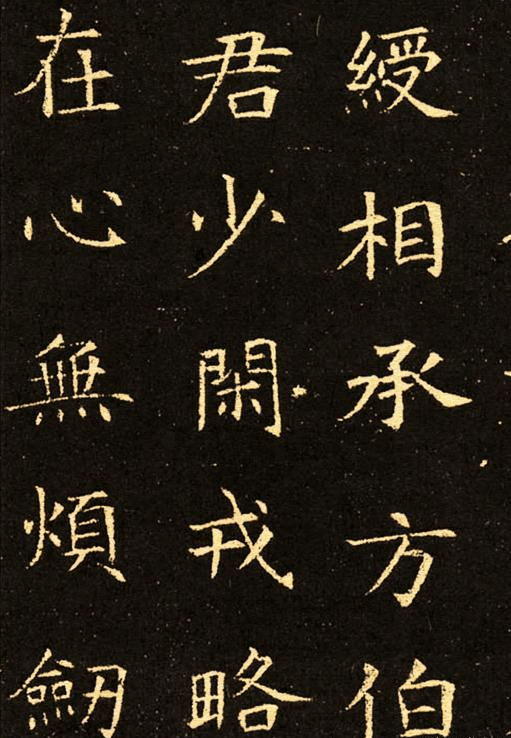 綬相承方伯
君少閑戎略
在心無煩劒